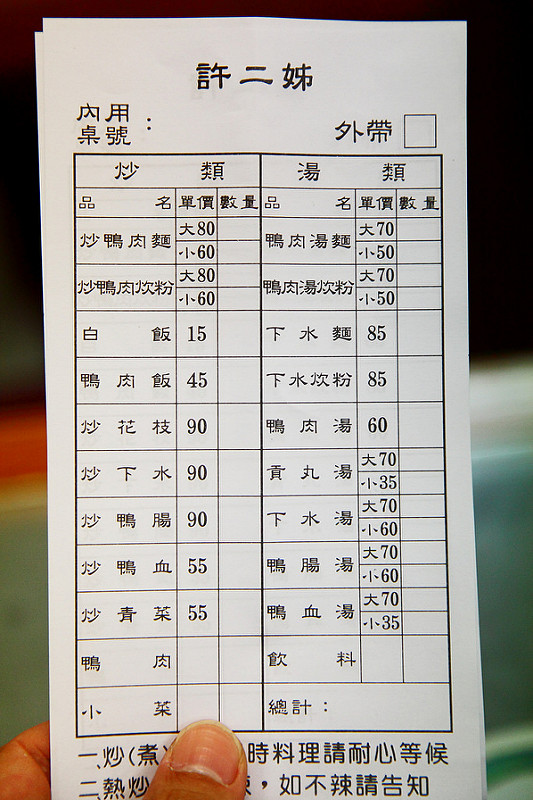 許二姊
內用
桌號：
外帶
炒類 湯類
品名 單價 數量 品名 單價 數量
炒鴨肉麵 大80 小60 鴨肉湯麵 大70 小50
炒鴨肉炊粉 大80 小60 鴨肉湯炊粉 大70 小50
白飯 15 下水麵 85
鴨肉飯 45 下水炊粉 85
炒花枝 90 鴨肉湯 60
炒下水 90 貢丸湯 大70 小35
炒鴨腸 90 下水湯 大70 小60
炒鴨血 55 鴨腸湯 大70 小60
炒青菜 55 鴨血湯 大70 小35
鴨肉 飲料
小菜 總計：
一、炒(煮 時料理請耐心等候
二、熱炒 ，如不辣請告知